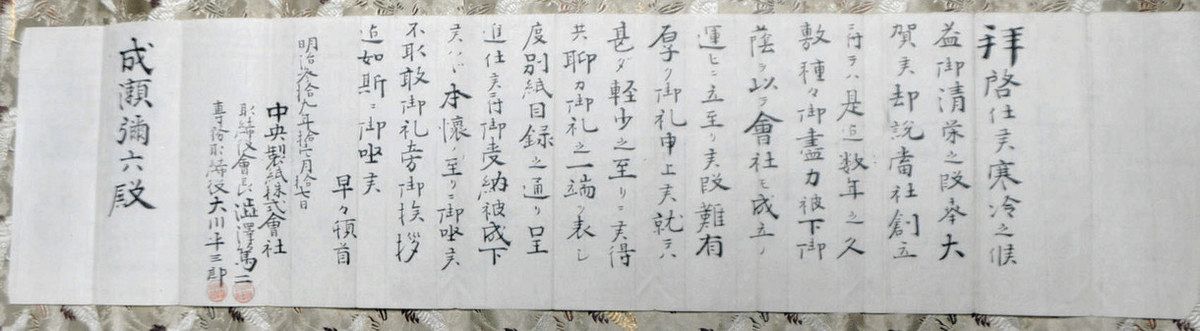 拝啓仕候寒冷之候
益御清栄之段奉大
賀候却説當社創立
ニ付テハ是迄数年之久
敷種々御盡力被下御
蔭ヲ以テ會社モ成立ノ
運ヒニ立至リ候段難有
厚ク御礼申上候就テハ
甚ダ軽少之至リニ候得
共聊カ御礼之一端ヲ表シ
度別紙目録之通リ呈
進仕候付御受納被成下
候ハヾ本懐ノ至リニ御座候
不取敢御礼旁御挨拶
迄如斯ニ御座候
早々頓首
明治参拾九年拾弐月拾日
中央製紙株式會社
取締役會長澁澤篤二
専務取締役大川平三郎
成瀬彌六殿